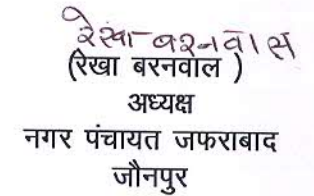 रेखा बरनवाल
(रेखा बरनवाल )
अध्यक्ष
नगर पंचायत जफराबाद
जौनपुर